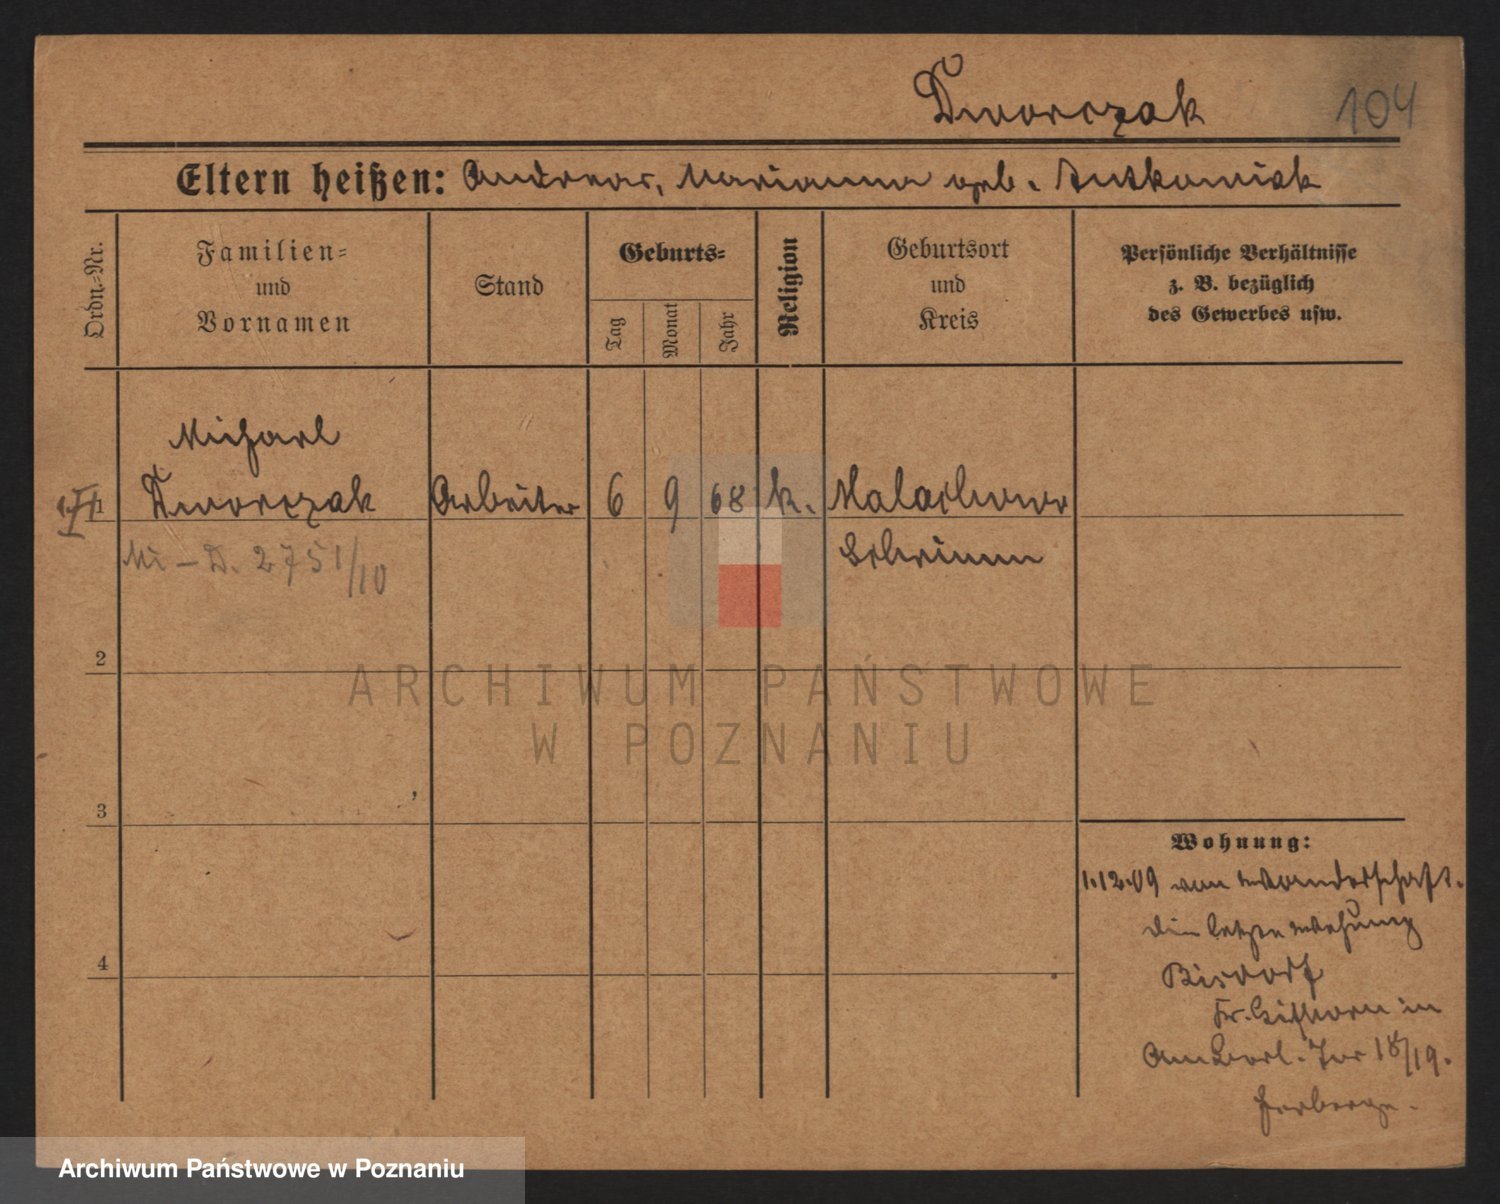 Dworczak
104
Eltern heißen: Andreas, Marianna geb. Antkowiak
Ordn.-Nr.
Familien-
und
Vornamen
Stand
Geburts-
Tag
Monat
Jahr
Religion
Geburtsort
und
Kreis
Persönliche Verhältnisse
z. B. bezüglich
des Gewerbes usw.
Michael
1 Dworczak Arbeiter 6 9 68 k. Malachowo
Mi - D. 2751/10
Schrimm
2
ARCHIWUM PAŃSTWOWE
W POZNANIU
3
Wohnung:
1.12.09 von Wanderschaft.
die letzte Wohnung
Bisdorf
Kr. Gifhorn in
4
18/19.
Herberge.
Archiwum Państwowe w Poznaniu